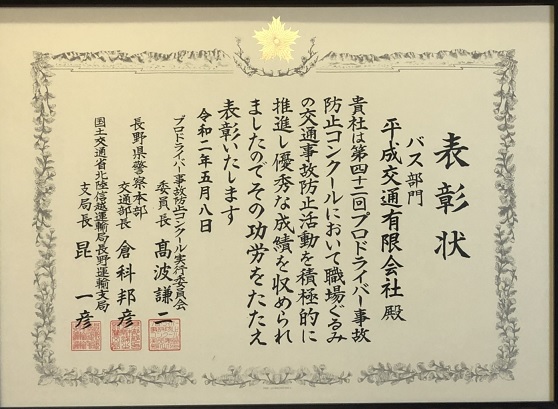 表彰状
バス部門
平成交通有限会社 殿
貴社は第四十二回プロドライバー事故
防止コンクールにおいて職場ぐるみ
の交通事故防止活動を積極的に
推進し優秀な成績を収められ
ましたのでその功労をたたえ
表彰いたします
令和二年五月八日
プロドライバー事故防止コンクール実行委員会
委員長 髙波謙二
長野県警察本部
交通部長 倉科邦彦
国土交通省北陸信越運輸局長野運輸支局
支局長 昆 一彦